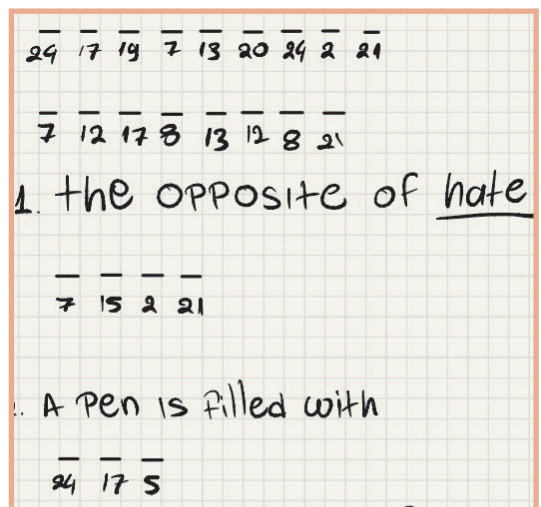 24 17 19 7 13 20 24 2 21
7 12 17 8 13 12 8 21
1. the opposite of hate
7 15 2 21
. A pen is filled with
24 17 5